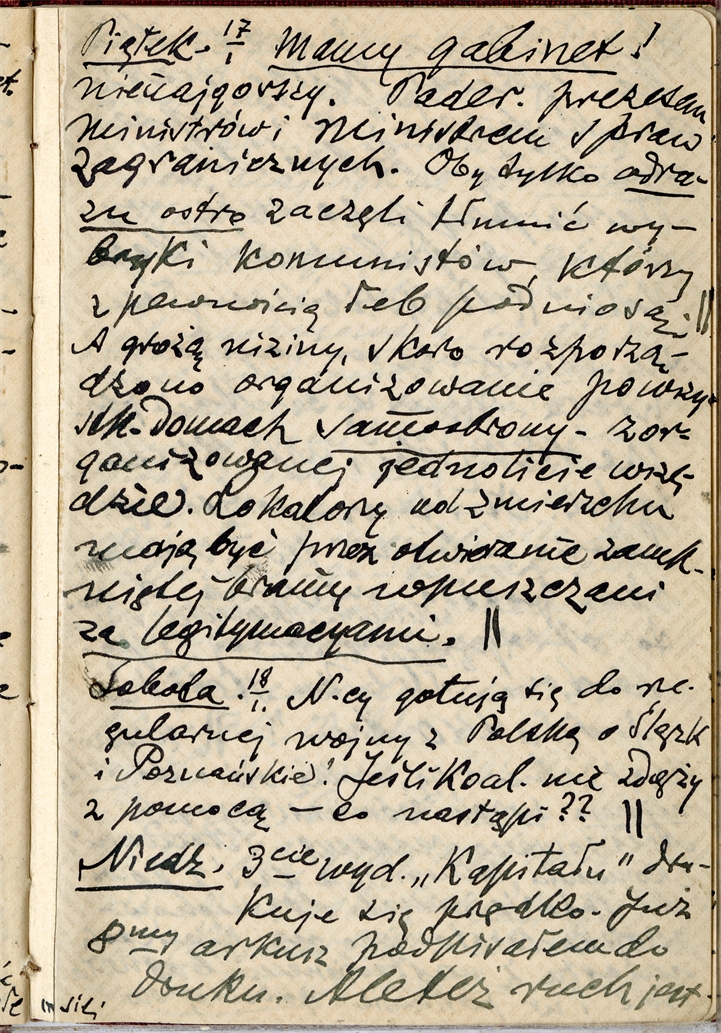 Piątek. 17/I Mamy gabinet!
nienajgorszy. Pader. prezesem
ministrów i ministrem spraw
zagranicznych. Oby tylko odra-
zu ostro zaczęli tłumić wy-
bryki komunistów, którzy
z pewnością łeb podniosą. ||
A grożą niziny, skoro rozporzą-
dzono organizowanie po wszy-
stk. domach samoobrony - zor-
ganizowanej jednolicie wszę-
dzie. Lokatorzy od zmierzchu
mają być przez otwieranie zamk-
niętej bramy wpuszczani
za legitymacyami. ||
Sobota. 18/I. N-cy gotują się do re-
gularnej wojny z Polską o Śląsk
i Poznańskie! Jeśli Koal. nie zdąży
z pomocą — co nastąpi?? ||
Niedz. 3cie wyd. „Kapitału" dru-
kuje się prędko. Już
8my arkusz podpisałem do
druku. Ale też ruch jest